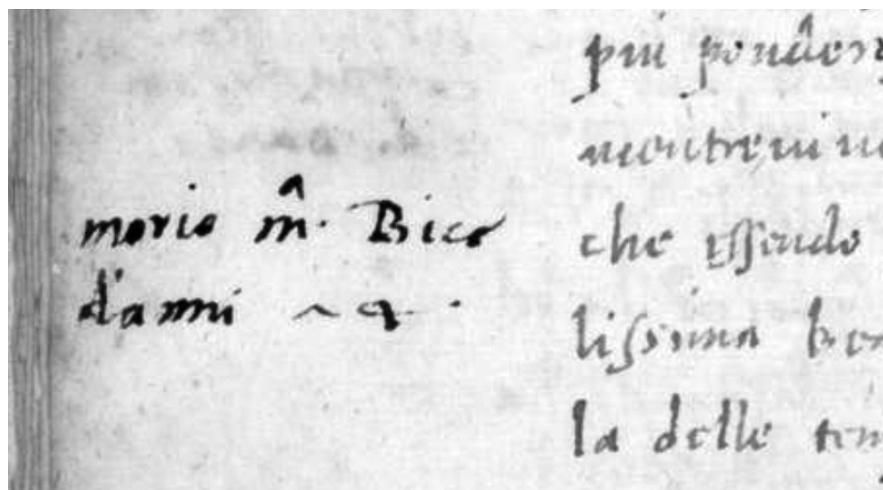 morio m̂. Bice
d'anni
piu ponder
montre viu
che essendo
lissima be
la delle tem